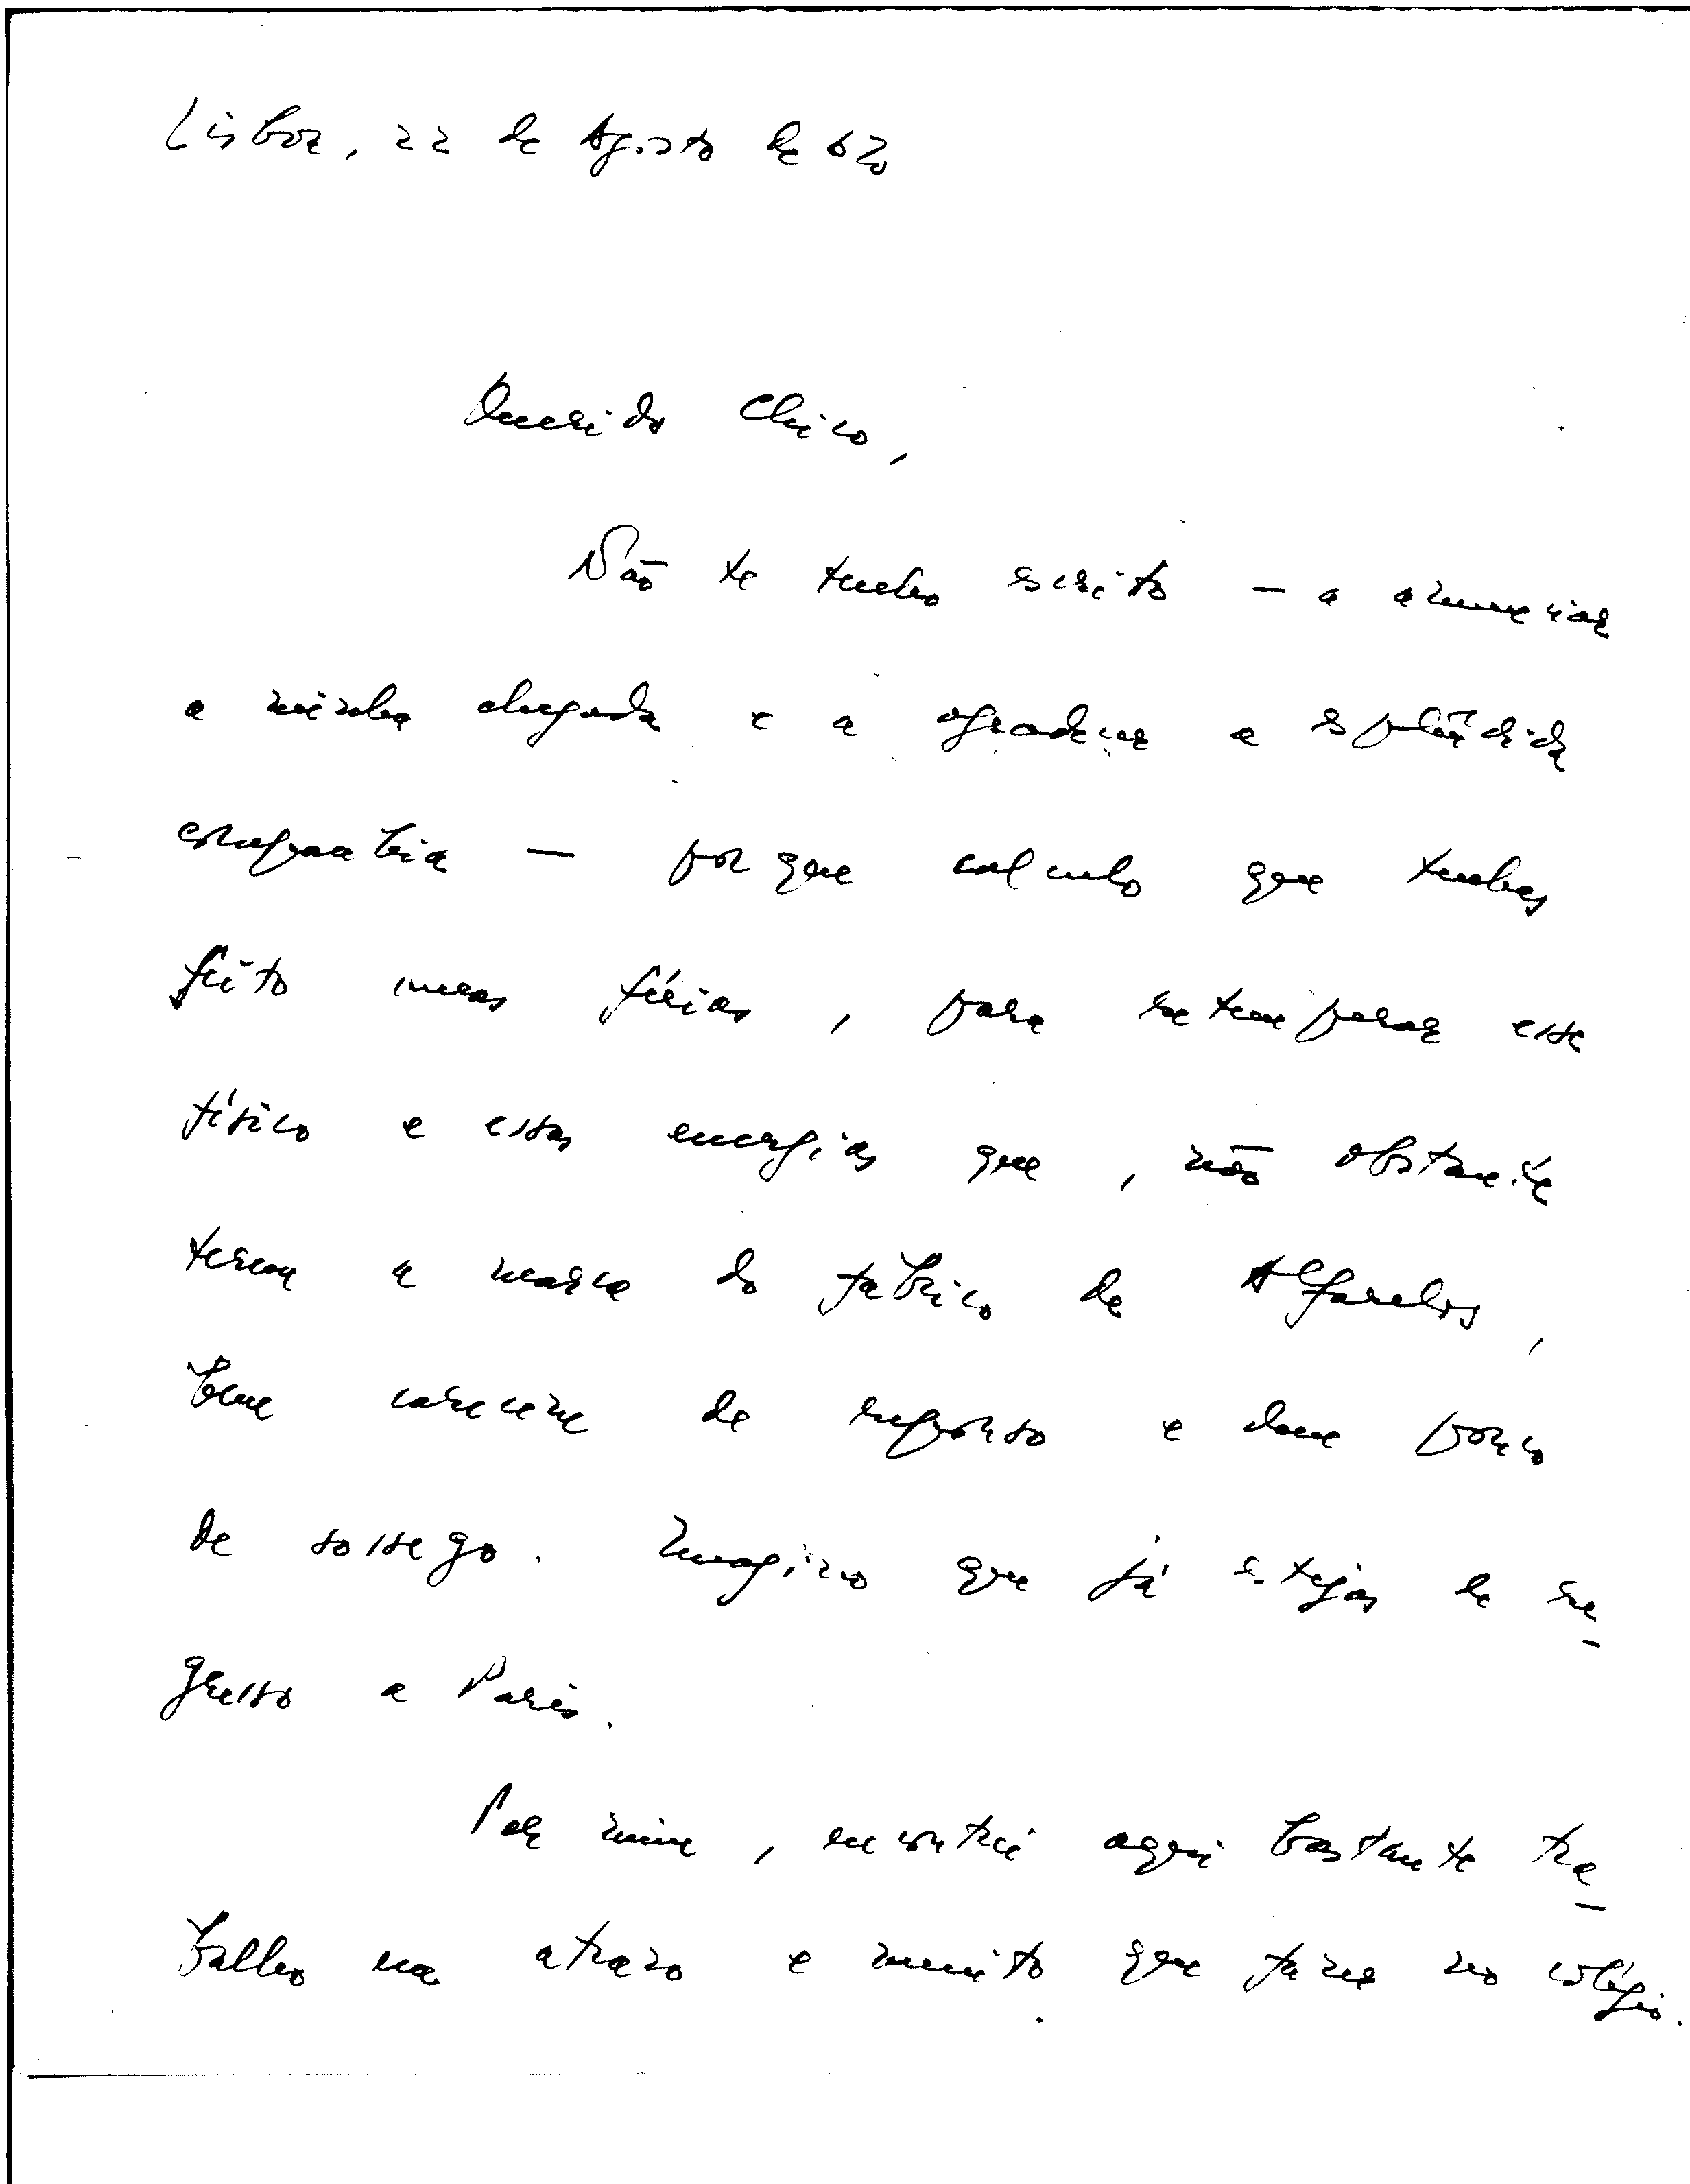 Lisboa, 22 de Agosto de
Querido Chico,
Não te tenho escrito – a anunciar
a minha chegada e a agradecer a esplêndida
companhia – porque calculo que tenhas
feito umas férias, para retemperar esse
físico e essas energias que, não obstante
terem a marca do fabrico de Alfarelos,
bem carecem de repouso e dum pouco
de sossego. Imagino que já estejas de re-
gresso a Paris.
Por mim, encontrei aqui bastante tra-
balho em atrazo e muito que fazer no colégio.